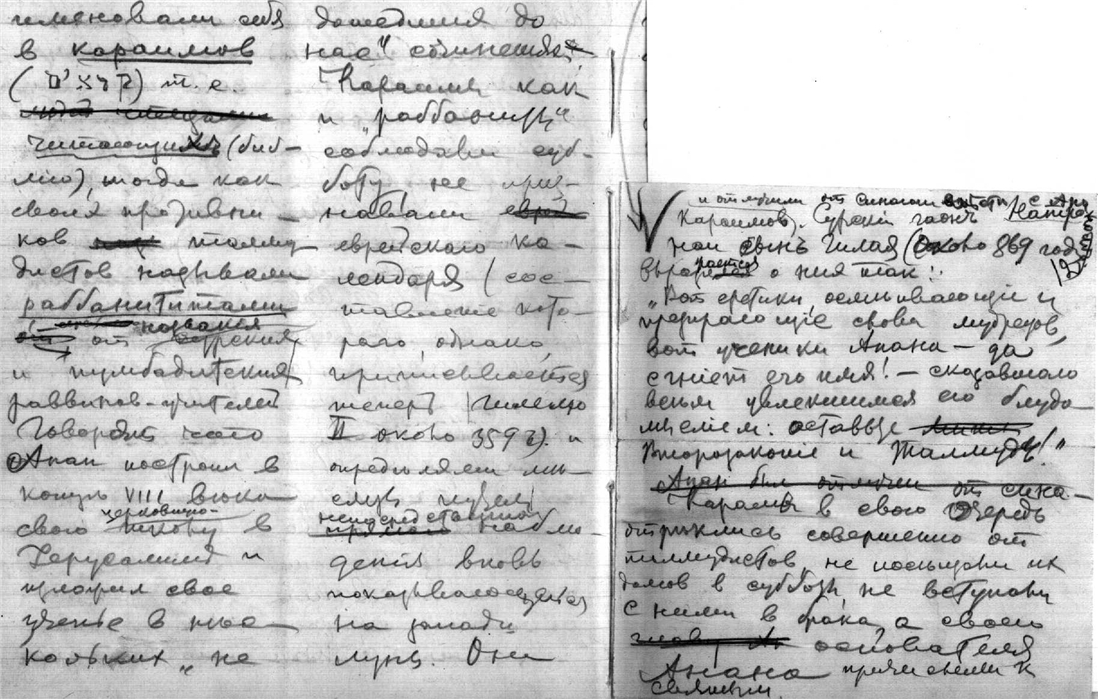 именовали себя
в караимов
(קראים) т.е.
читающихъ (биб-
лию), тогда как
своих противни-
ков талму-
дистов называли
раббанитами
названия
от сурских
и пумбадитских
раввинов-учителей
Говорят что
Анан построил в
концѣ VIII вѣка
свою школу в
Iерусалимѣ и
изложил свое
ученье в нѣс-
кольких „не
дошедших до
нас" сочинениях.
Караимы как
и „раббаниты"
соблюдали суб-
боту не приз-
навали
еврейского ка-
лендаря (сос-
тавление кото-
раго, однако,
приписывается
теперь Гиллелю
II около 359 г). и
определяли
непосредственно
наблю-
дения вновь
показывающегося
на западѣ
луны. Они
и отлучили от синагоги
Караимов). Сурский гаонъ Натро-
най сынъ Гилая (около 869 года
выражается о них так:
„Вот еретики, осмѣивающiе и
презирающiе слова мудрецов,
вот ученики Анана — да
сгнiет его имя! — сказавшаго
всѣм увлекшимся его блудо-
мыслiем: оставьте
Второзаконiе и Талмудъ!"
Анан был отлучен от сина-
Караимы в свою очередь
отреклись совершенно от
талмудистов, не посѣщали их
домов в субботу, не вступали
с ними в брак, а своего
основателя
Анана причислили к
святым.